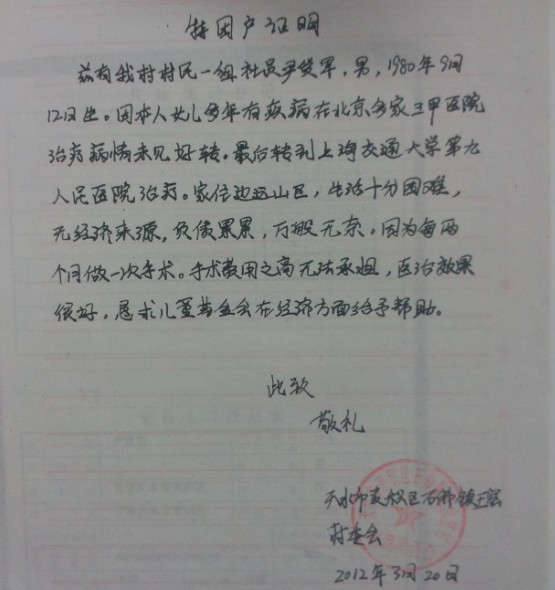 特困户证明
兹有我村村民一组社员尹俊军,男,1980年9月
12日生。因本人女儿多年有疾病在北京多家三甲医院
治疗病情未见好转。最后转到上海交通大学第九
人民医院治疗。家住边远山区,生活十分困难,
无经济来源,负债累累,万般无奈。因为每两
个月做一次手术。手术费用之高无法承担,医治效果
很好,恳求儿童基金会在经济方面给予帮助。
此致
敬礼
天水市麦积区石佛镇王窑
村委会
2012年3月20日